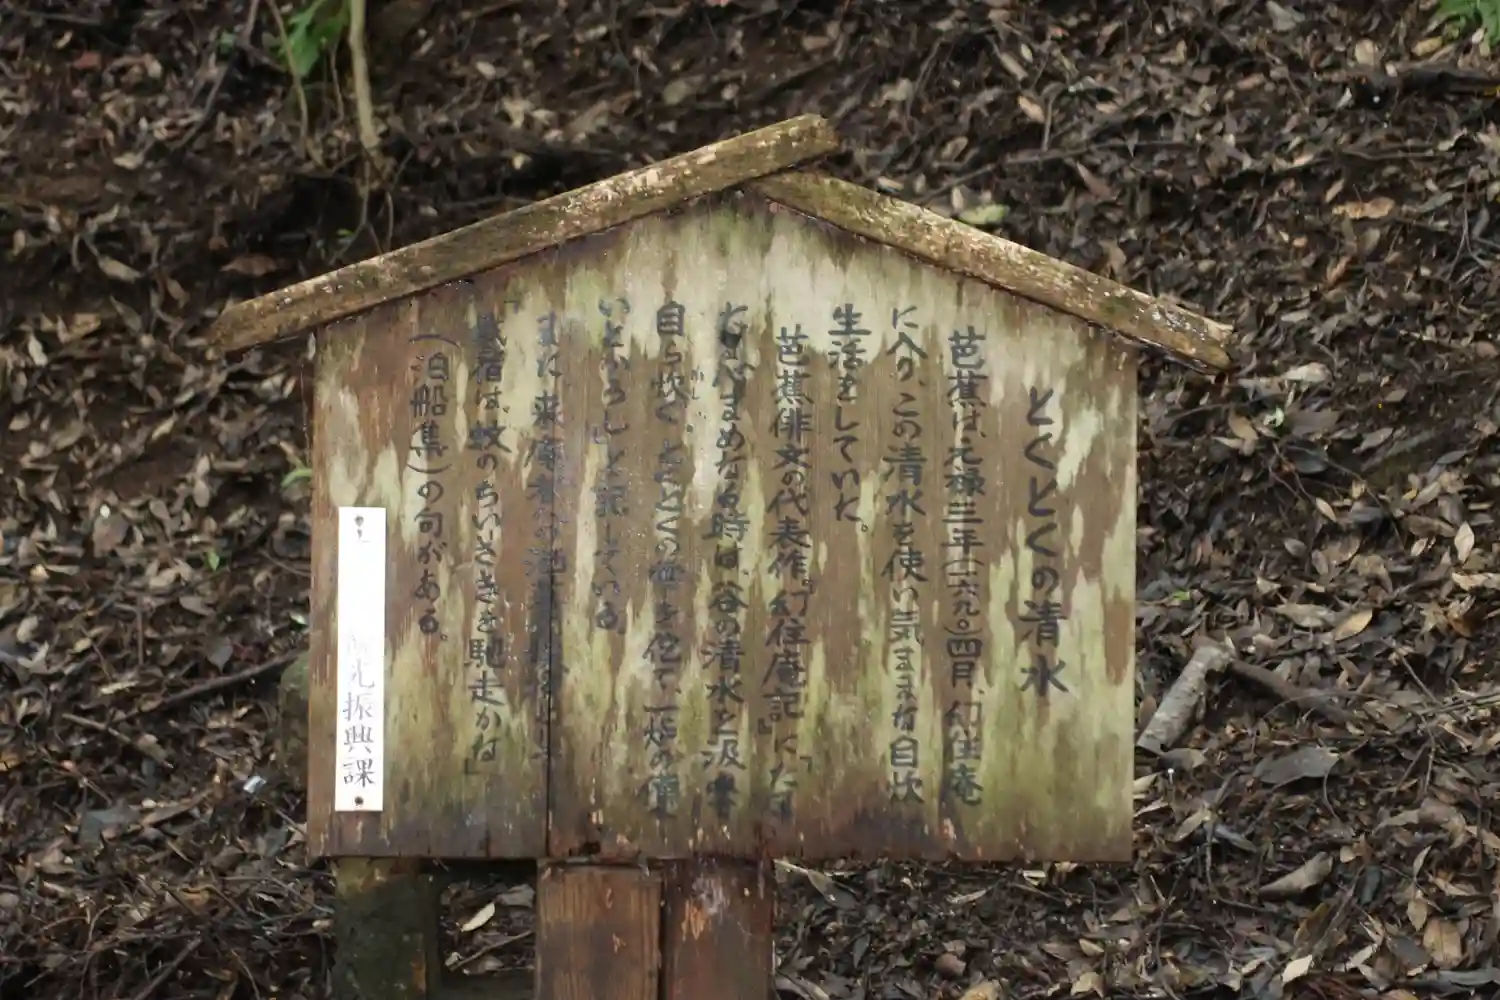 とくとくの清水
芭蕉は、元禄三年(一六九〇)四月、幻住庵
に入り、この清水を使い気ままな自炊
生活をしていた。
芭蕉俳文の代表作。『幻住庵記』に「たま
たま心まめなる時は、谷の清水を汲みて
自ら炊ぐ。とくとくの雫を侘て、一炉の備
いとかろし」と記している。
また、来庵者への
「我宿は、蚊のちいさきを馳走かな」
(泊船集)の句がある。
観光振興課